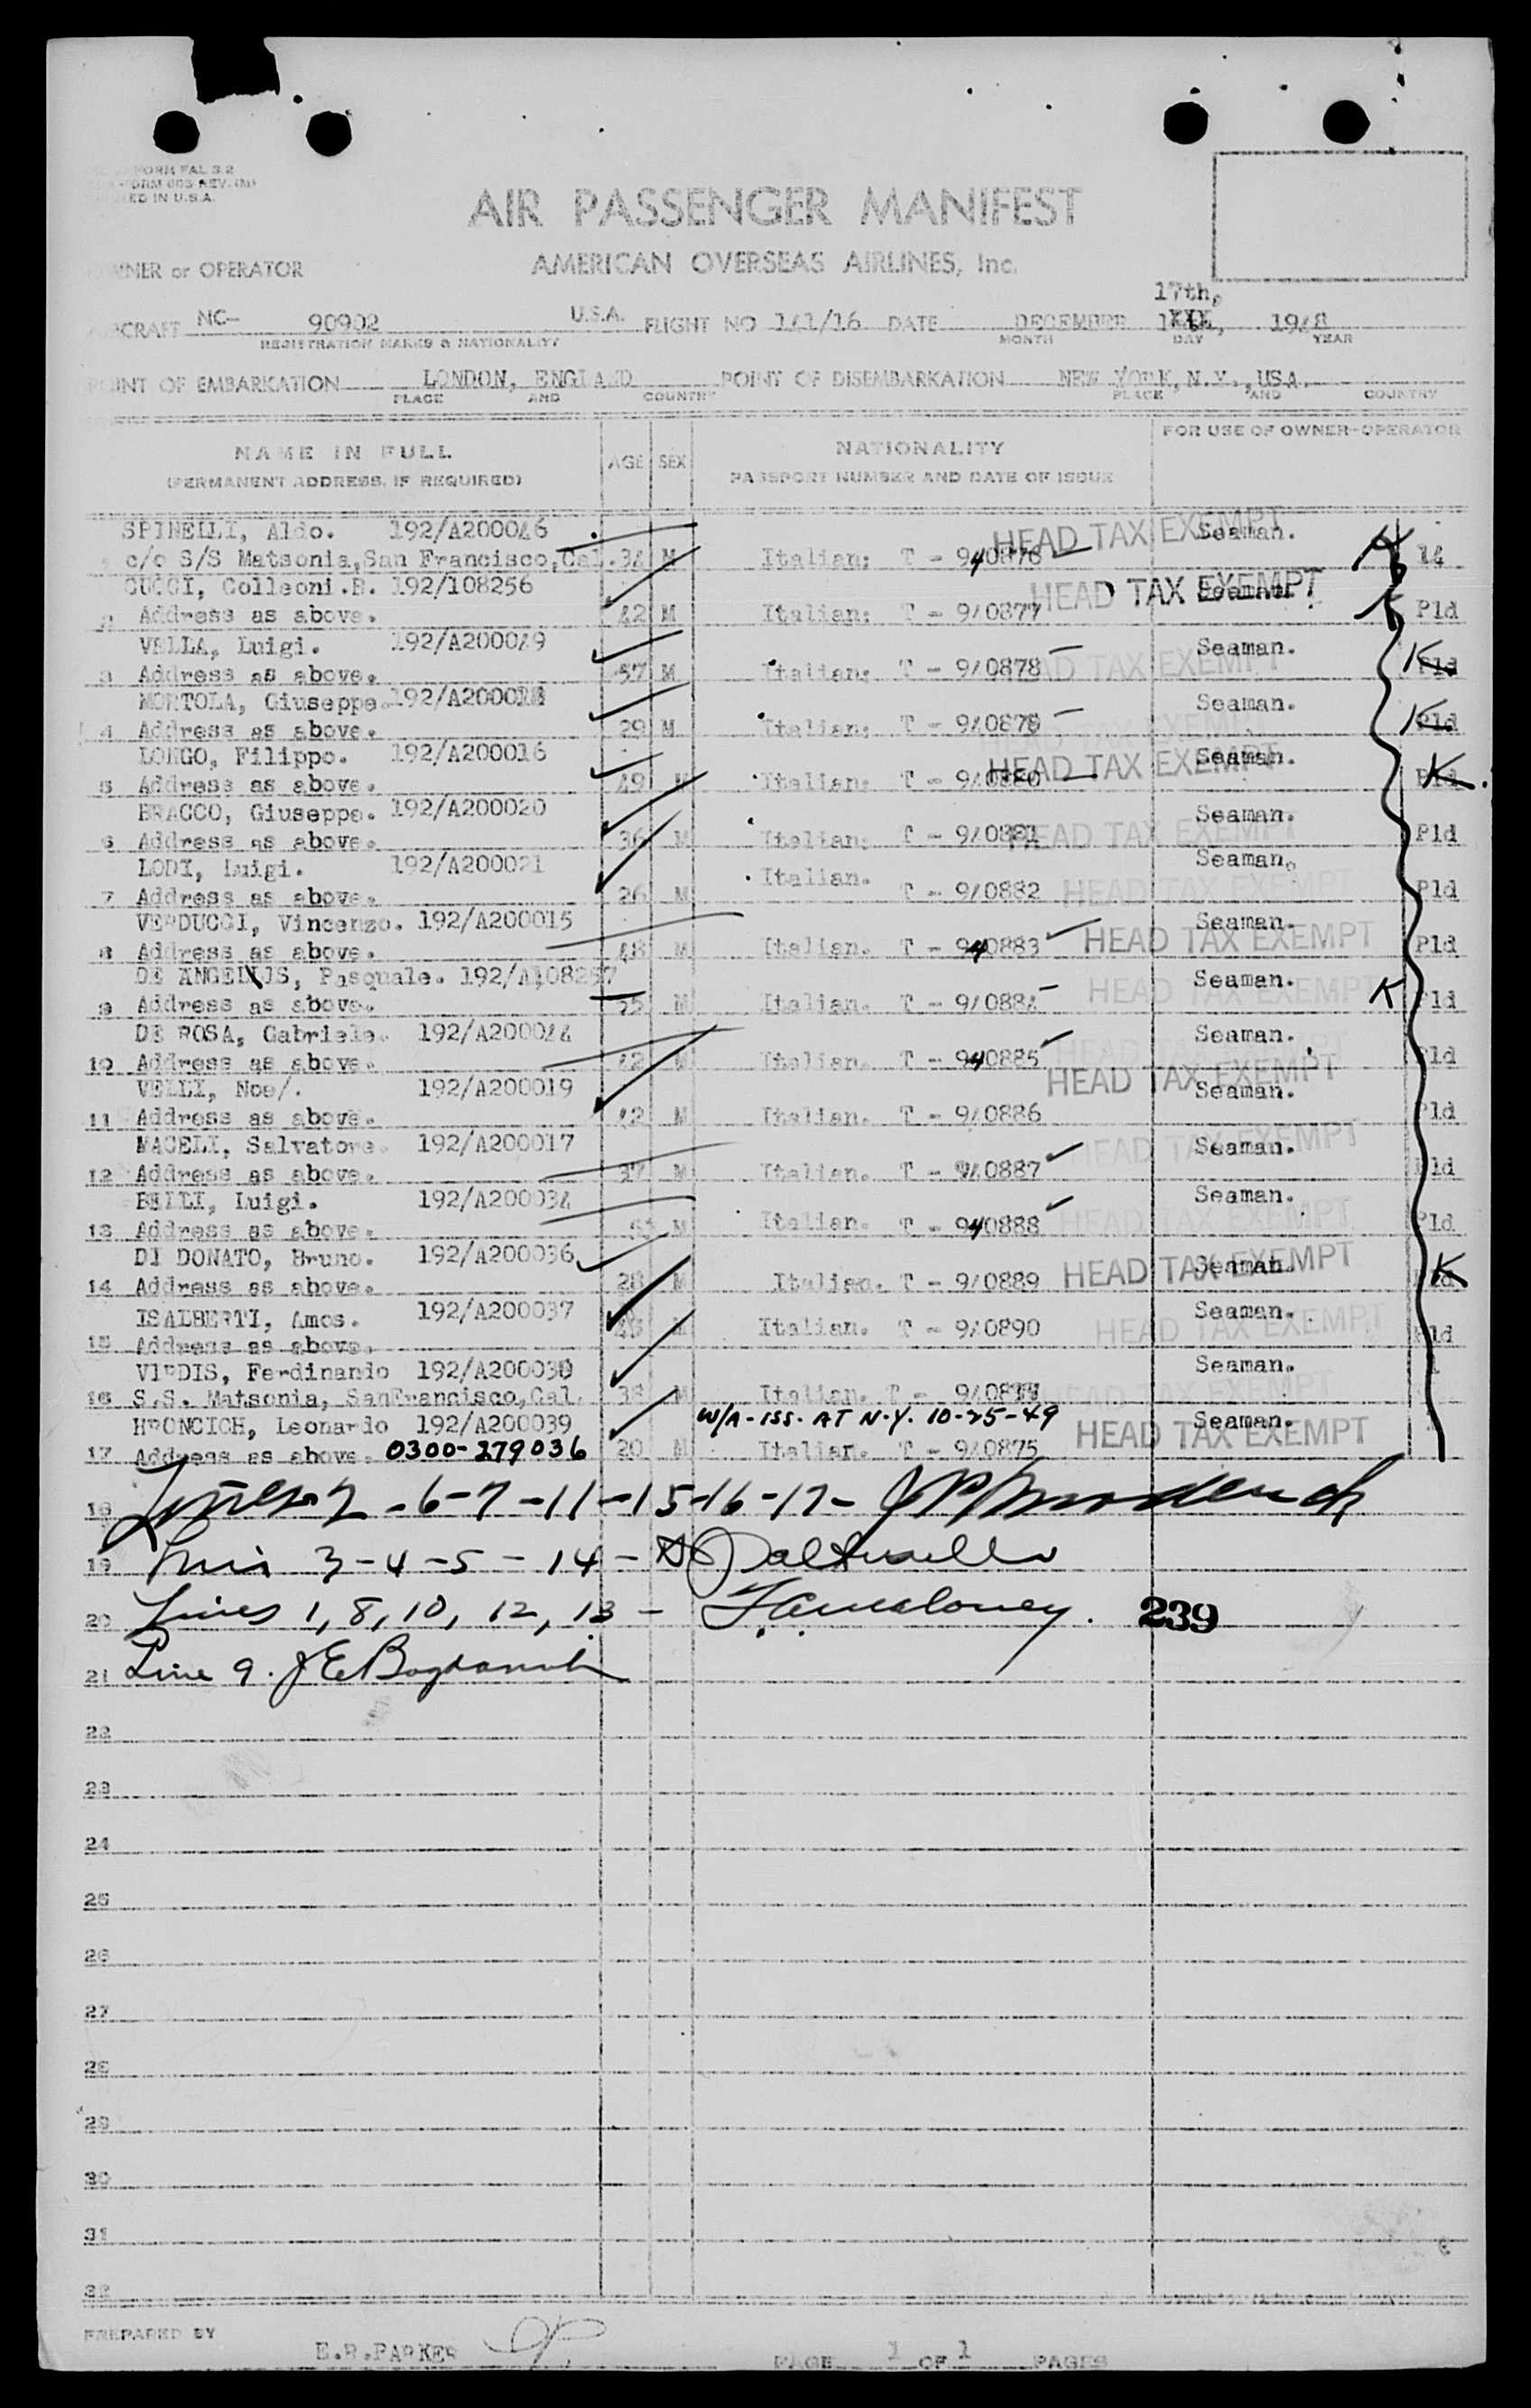 FORM FAL 3 2
ED IN U.S.A.
AIR PASSENGER MANIFEST
OWNER or OPERATOR
AMERICAN OVERSEAS AIRLINES, Inc.
17th,
AIRCRAFT NC- 90902 U.S.A. FLIGHT NO 141/16 DATE DECEMBER 1948
REGISTRATION MARKS & NATIONALITY MONTH DAY YEAR
POINT OF EMBARKATION LONDON, ENGLAND POINT OF DISEMBARKATION NEW YORK, N.Y., USA.
PLACE AND COUNTRY PLACE AND COUNTRY
NAME IN FULL
(PERMANENT ADDRESS, IF REQUIRED)
AGE SEX
NATIONALITY
PASSPORT NUMBER AND DATE OF ISSUE
FOR USE OF OWNER-OPERATOR
SPINELLI, Aldo. 192/A200046 HEAD TAX EXEMPT Seaman.
1 c/o S/S Matsonia, San Francisco, Cal. 34 M Italian: T - 940876 14
CUCCI, Colleoni.B. 192/108256 HEAD TAX EXEMPT Seaman.
2 Address as above. 42 M Italian: T - 940877 Pld
VELLA, Luigi. 192/A200049 Seaman.
3 Address as above. 57 M Italian: T - 940878 HEAD TAX EXEMPT K Pld
MORTOLA, Giuseppe. Seaman.
4 Address as above. 29 M Italian: T - 940879 HEAD TAX EXEMPT K Pld
LONGO, Filippo. 192/A200016 Seaman.
5 Address as above. 49 M Italian: T - 940880 HEAD TAX EXEMPT K Pld
BRACCO, Giuseppe. 192/A200020 Seaman.
6 Address as above. 36 M Italian: T - 940881 HEAD TAX EXEMPT Pld
LODI, Luigi. 192/A200021 Italian. Seaman.
7 Address as above. 26 M T - 940882 HEAD TAX EXEMPT Pld
VERDUCCI, Vincenzo. 192/A200015 Seaman.
8 Address as above. 48 M Italian. T - 940883 HEAD TAX EXEMPT Pld
DE ANGELIS, Pasquale. 192/A108257 Seaman.
9 Address as above. M Italian. T - 940884 HEAD TAX EXEMPT K Pld
DE ROSA, Gabriele. 192/A200044 Seaman.
10 Address as above. 42 M Italian. T - 940885 HEAD TAX EXEMPT Pld
VELLI, Noe/. 192/A200019 HEAD TAX EXEMPT Seaman.
11 Address as above. 42 M Italian. T - 940886 Pld
MACELI, Salvatore. 192/A200017 Seaman.
12 Address as above. 37 M Italian. T - 940887 HEAD TAX EXEMPT Pld
BELLI, Luigi. 192/A200034 Seaman.
13 Address as above. M Italian. T - 940888 HEAD TAX EXEMPT Pld
DI DONATO, Bruno. 192/A200036 Seaman.
14 Address as above. 28 M Italian. T - 940889 HEAD TAX EXEMPT K Pld
ISALBERTI, Amos. 192/A200037 Seaman.
15 Address as above. M Italian. T - 940890 HEAD TAX EXEMPT Pld
VIRDIS, Ferdinando Seaman.
16 S.S. Matsonia, SanFrancisco, Cal. 38 M Italian. T - HEAD TAX EXEMPT
HRONCICH, Leonardo 192/A200039 W/A - ISS. AT N.Y. 10-25-49 Seaman.
17 Address as above. 0300-279036 20 M Italian. T - 940875 HEAD TAX EXEMPT
18 -6-7-11-15-16-17-
19 3-4-5-14-
20 Lines 1, 8, 10, 12, 13 - 239
21 Line 9.
22
23
24
25
26
27
28
29
30
31
32
PREPARED BY
E.R.PARKER
PAGE 1 OF 1 PAGES